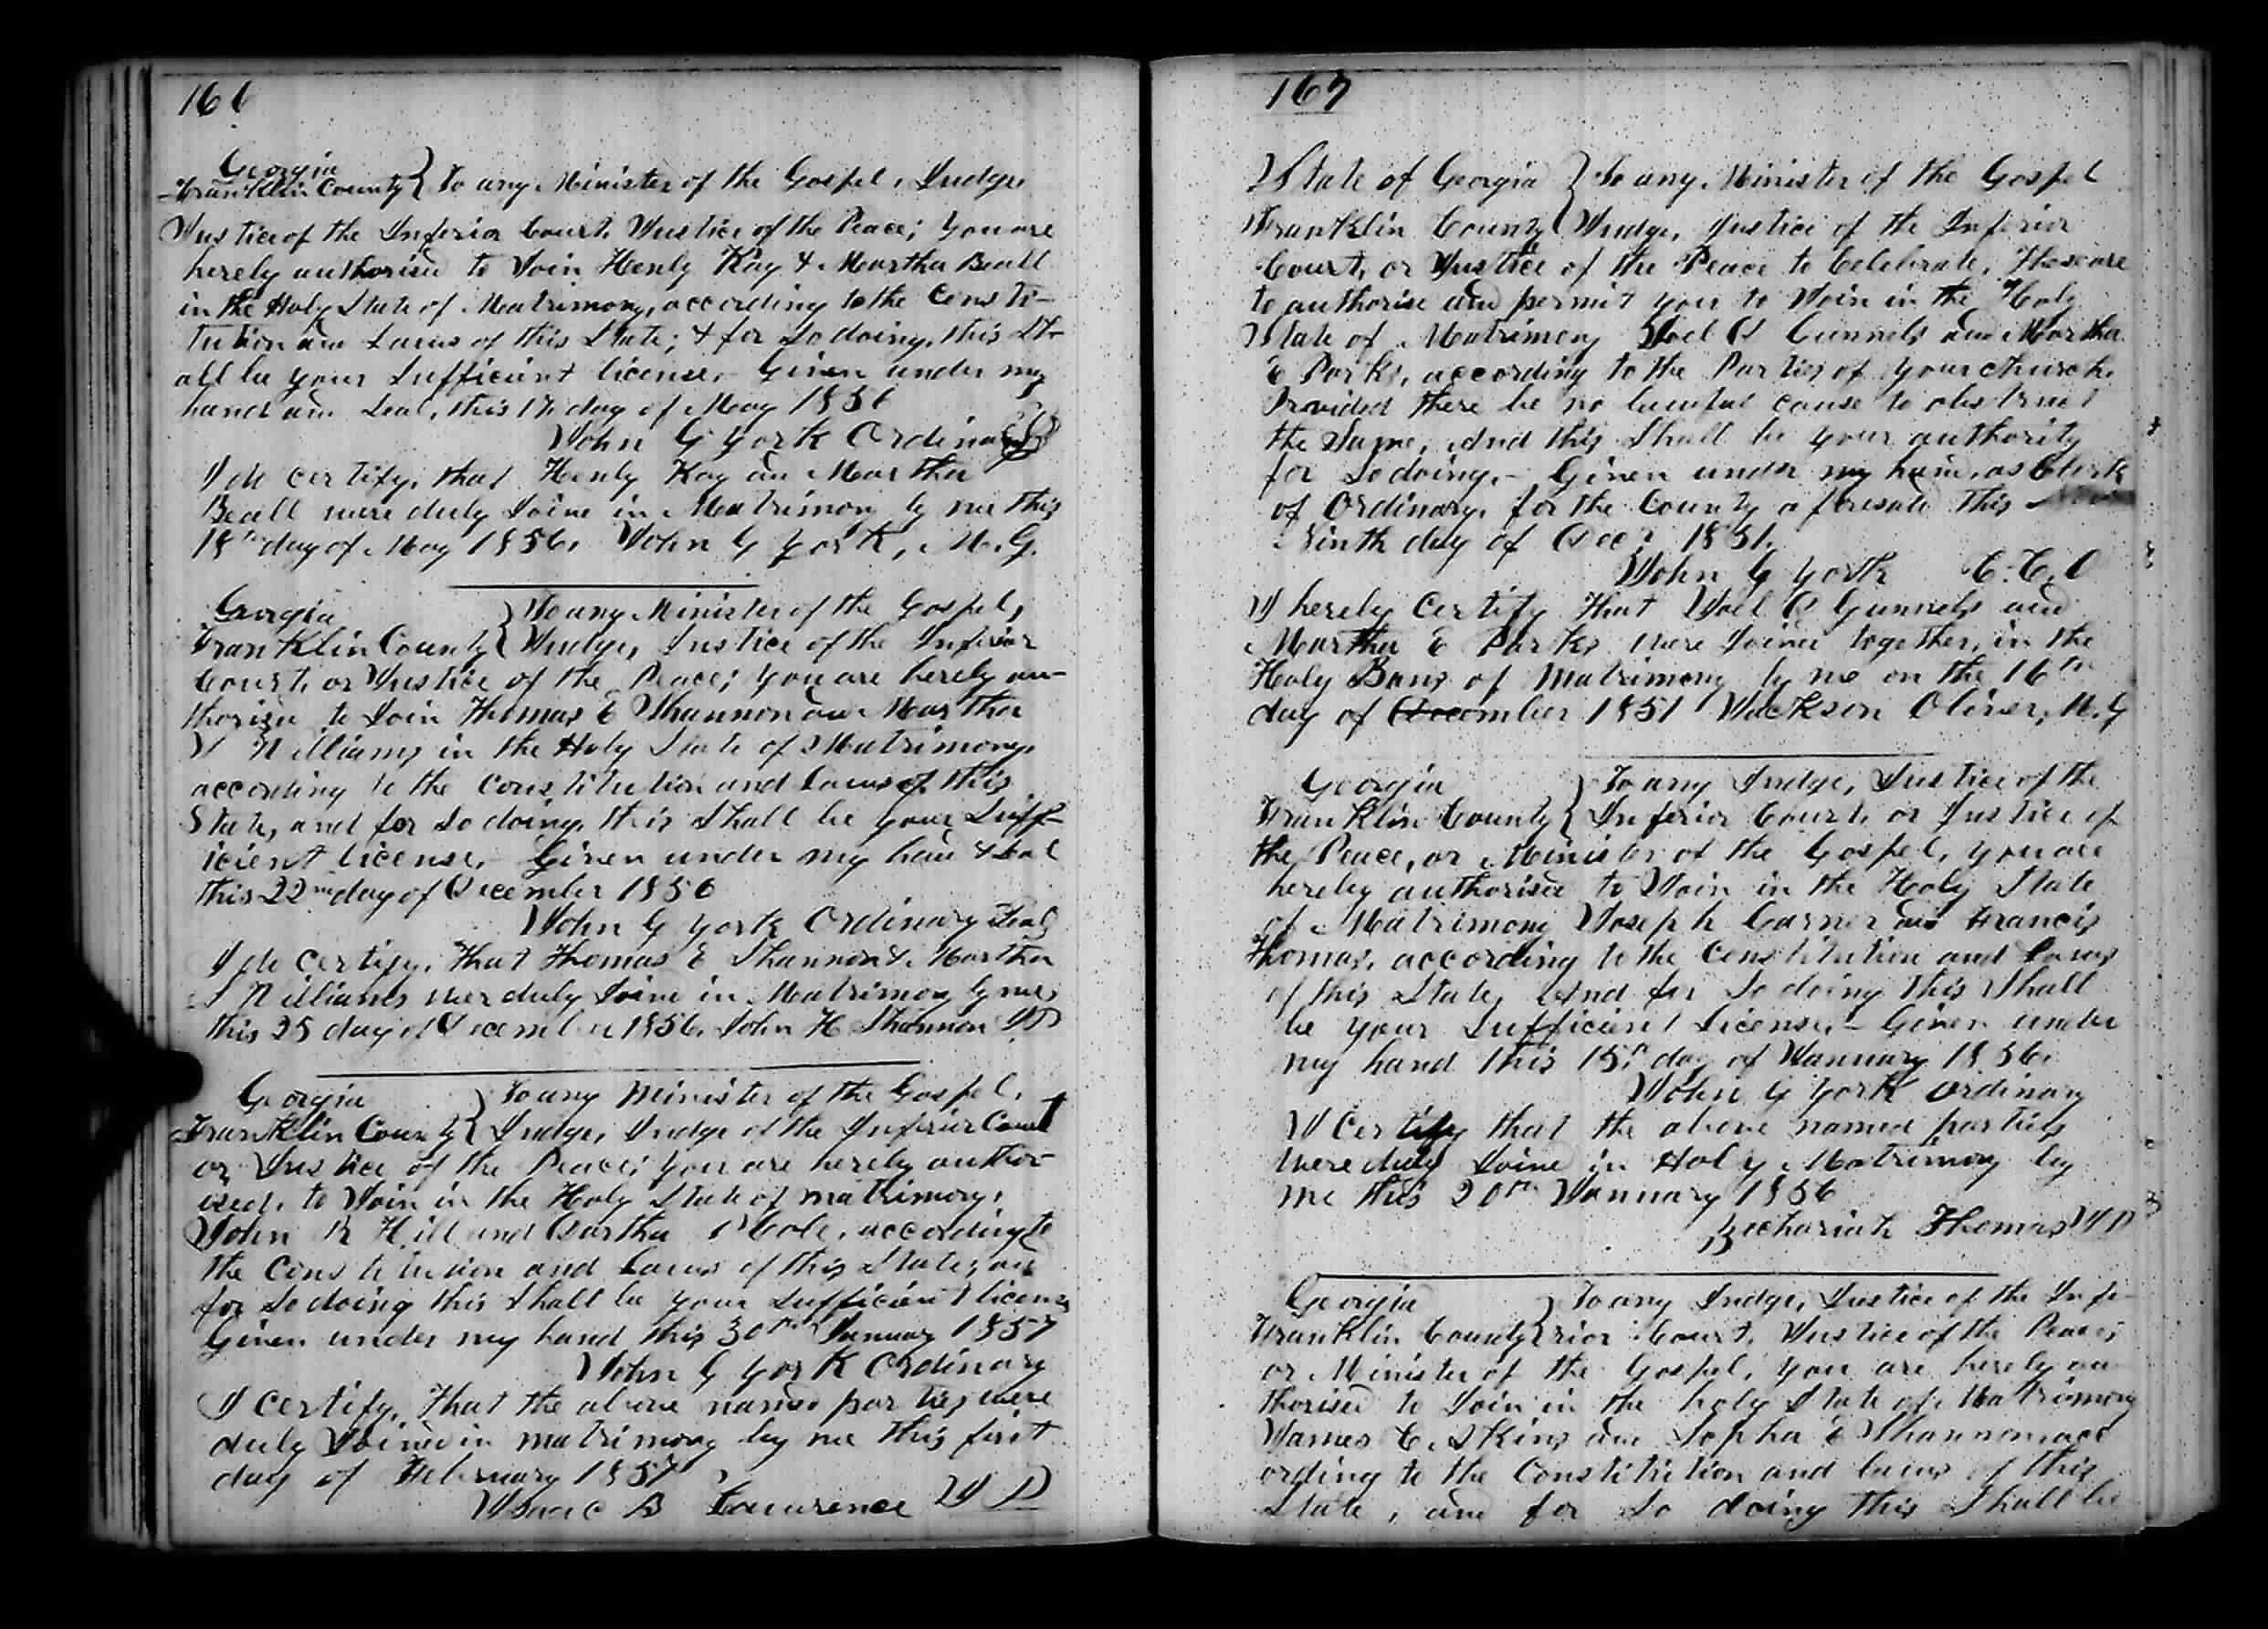 166
Georgia
Franklin County } To any Minister of the Gospel, Judge,
Justice of the Inferior Court, Justice of the Peace; you are
herely authorised to Join Henly Kay & Martha Beall
in the Holy State of Matrimony, according to the Consti-
tution and Laws of this State; & for So doing, this Sh-
all be your Sufficient license, Given under my
hand and Seal, this 17 day of May 1856
John G York Ordinary
I do certify, that Henly Kay and Martha
Beall were duly Joind in Matrimony by me this
18th day of May 1856, John G York, M. G.
Georgia } To any Minister of the Gospel,
Franklin County } Judge, Justice of the Inferior
Court, or Justice of the Peace; you are herely au-
thorised to Join Thomas E Shannon and Martha
J Williams in the Holy State of Matrimony,
according to the Constitution and Laws of this
State, and for So doing, this Shall be your Suff-
icient license, Given under my hand & Seal
this 22nd day of December 1856
John G York Ordinary Seal
I do certify, that Thomas E Shannon & Martha
J Williams wer duly Joind in Matrimony by me,
this 25 day of December 1856. John H Shannon JP
Georgia } To any Minister of the Gospel,
Franklin County } Judge, Judge of the Inferior Court
or Justice of the Peace; you are herely author-
ised, to Join in the Holy State of matrimony,
John R Hill and Bartha Cole, according to
the Constitution and Laws of this State; and
for So doing this Shall be your Sufficient license
Given under my hand this 30th January 1857
John G York Ordinary
I certify, that the above named parties were
duly Joined in matrimony by me this first
day of February 1857
Isaac B Lawrence JP
167
State of Georgia } To any Minister of the Gospel
Franklin County } Judge, Justice of the Inferior
Court, or Justice of the Peace to Celebrate, These are
to authorise and permit you to Join in the Holy
State of Matrimony Joel Gunnels and Martha
E Parks, according to the Parties of your church,
Provided there be no lawful cause to obstruct
the Same, And this Shall be your authority
for So doing, - Given under my hand, as Clerk
of Ordinary, for the County aforesaid this
Ninth day of Decr 1851,
John G York C. C. O
I herely Certify that Joel Gunnels and
Martha E Parks were Joined together, in the
Holy Bans of Matrimony by me on the 16th
day of December 1851 Jackson Oliver, M. G
Georgia } To any Judge, Justice of the
Franklin County } Inferior Court, or Justice of
the Peace, or Minister of the Gospel, you are
hereby authorised to Join in the Holy State
of Matrimony Joseph Garner and Francis
Thomas, according to the Constitution and Laws
of this State, And for So doing this Shall
be your Sufficient License, - Given under
my hand this 15th day of January 1856.
John G York Ordinary
I Certify that the above named parties
were duly Joind in Holy Matrimony by
me this 20th January 1856
Zechariah Thomas JP
Georgia } To any Judge, Justice of the Infe-
Franklin County } rior Court, Justice of the Peace,
or Minister of the Gospel, you are herely au
thorised to Join in the holy State of Matrimony
James C. Akins and Sopha E Shannon, acc
ording to the Constitution and laws of this
State, and for So doing this Shall be